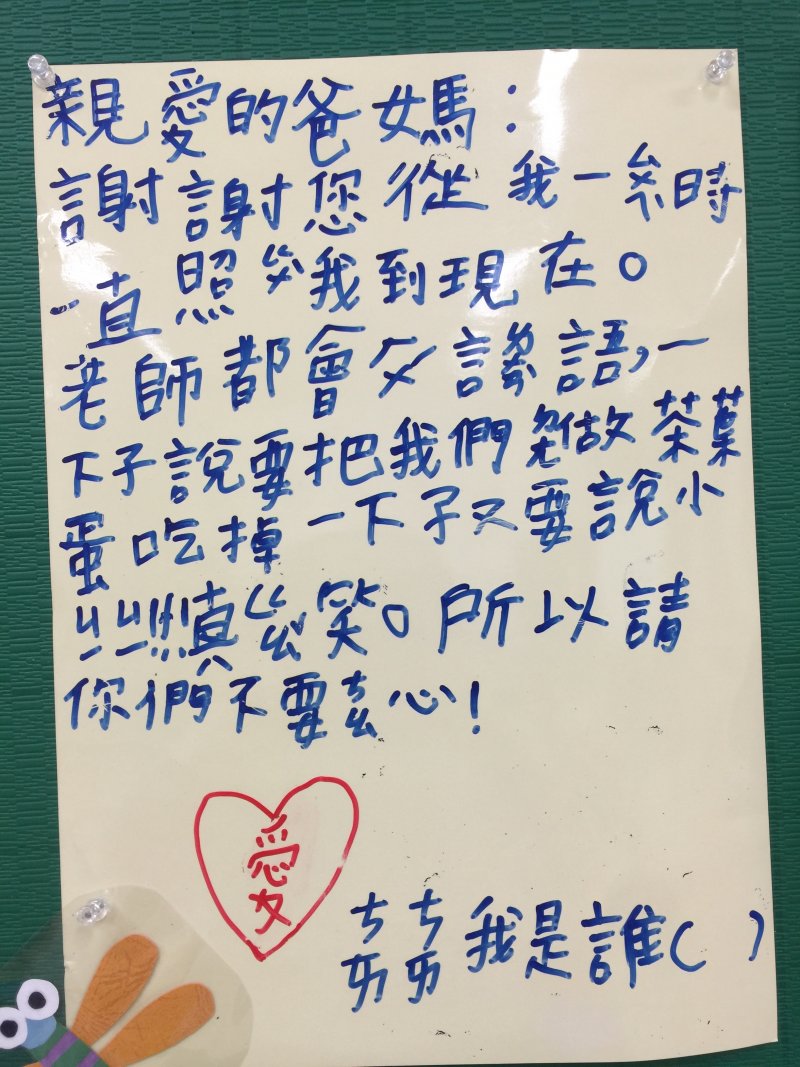 親愛的爸媽：
謝謝您從我一時
一直照我到現在。
老師都會語，一
下子說要把我們做茶葉
蛋吃掉一下子又要說小
真笑。所以請
你們不要ㄘㄠ心！
愛
ㄘㄞㄘㄞ我是誰( )